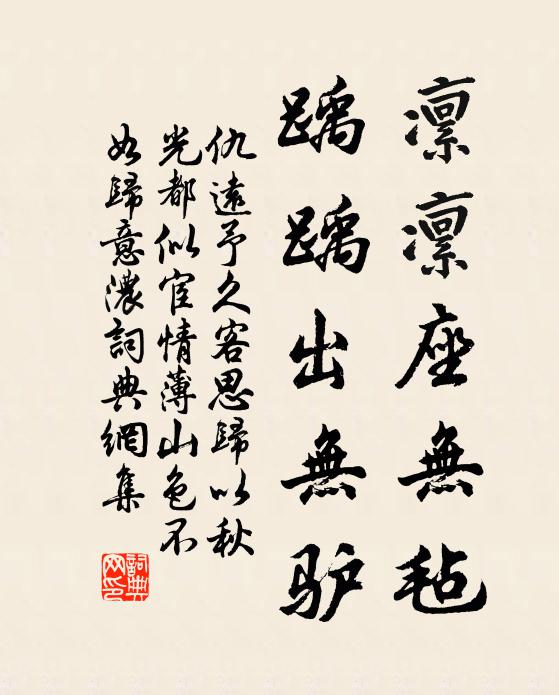 凛凛座無毡
踽踽出無驴
仇遠予久客思歸以秋
光都似宦情薄山色不
如歸意濃詞典網集
詞典网印